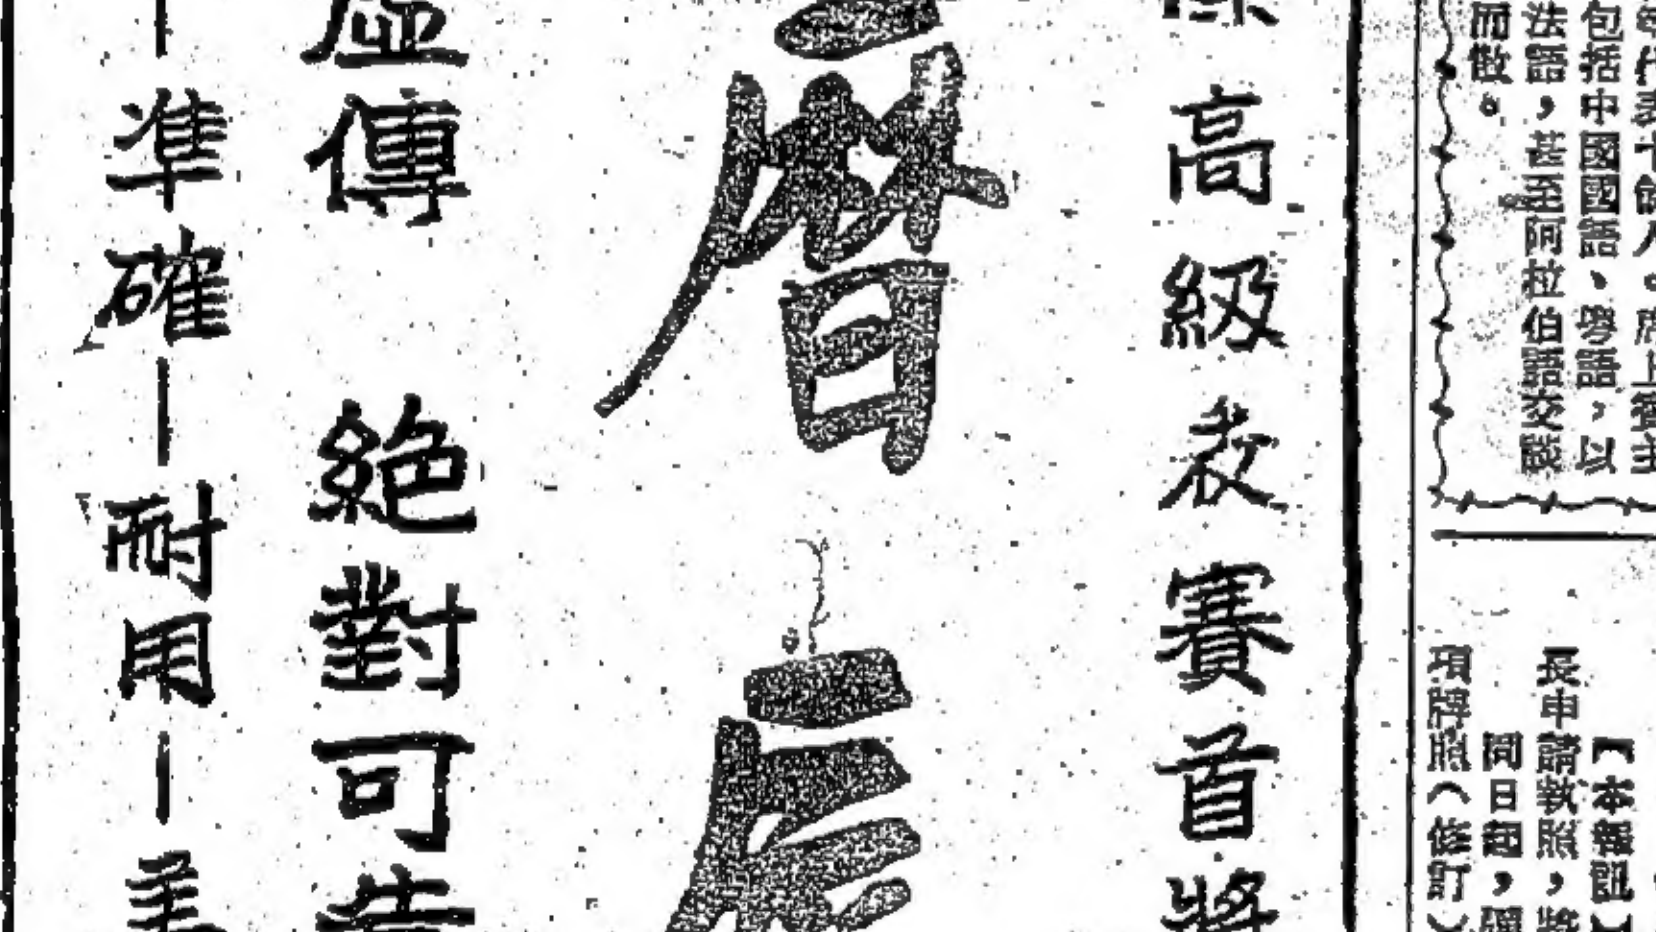 每代表十餘人。席上賓主
包括中國國語、粵語，以
法語，甚至阿拉伯語交談
而散。
【本報訊】
長申請執照，將
間日起，
項牌照（修訂）
高級表賽首獎
曆
虛傳 絕對可靠
—準確—耐用—美